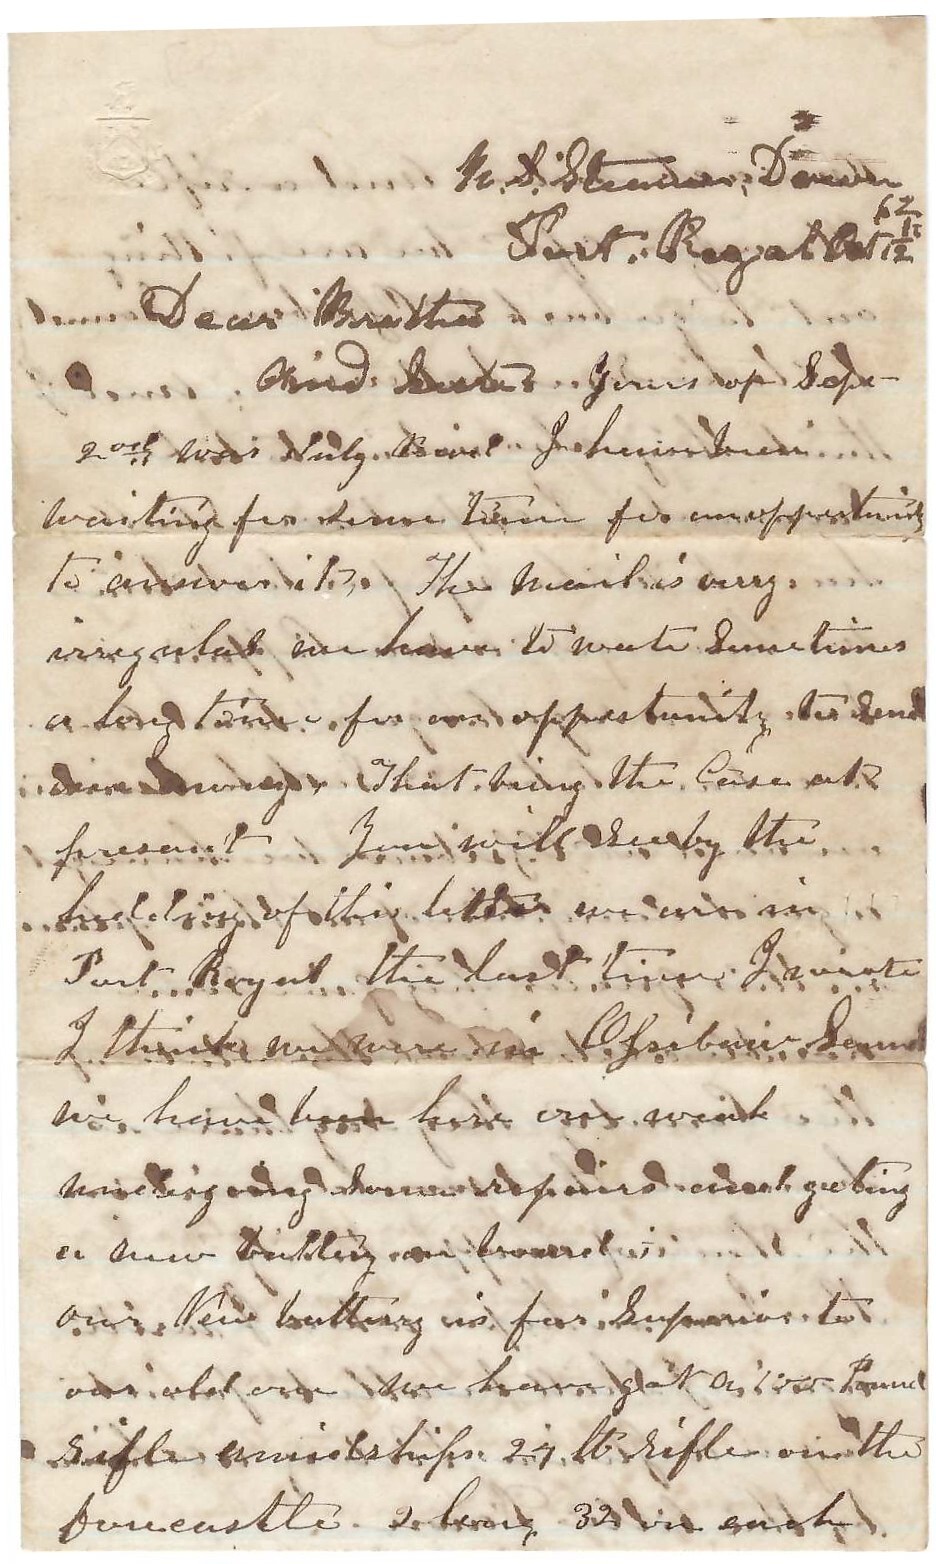 U.S. Steamer, Dawn
Port. Royal Oct 12
62
Dear Brother
Kind Sister. Yours of Sept
2ond was duly Recvd I have been
waiting for some time for an oppertunity
to answer it. The mail is very
irregular we have to wate Sometimes
a long time for an oppertunity to Send
money. That being the Case at
present You will See by the
hedding of this letter we are in
Port Royal the last time I wrote
I think we were in Ossibaw Sound
we have been here one week
undergoing Some repairs and geting
a new battery on board
our New battery is far Superior to
our old one we have got a 100 Pound
rifle amidships 24 lb rifle on the
forecastle 2 long 32 on each